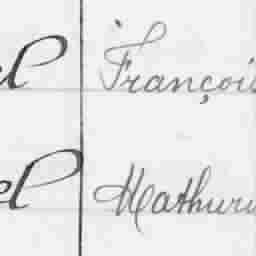 el Françoi
el Mathuri